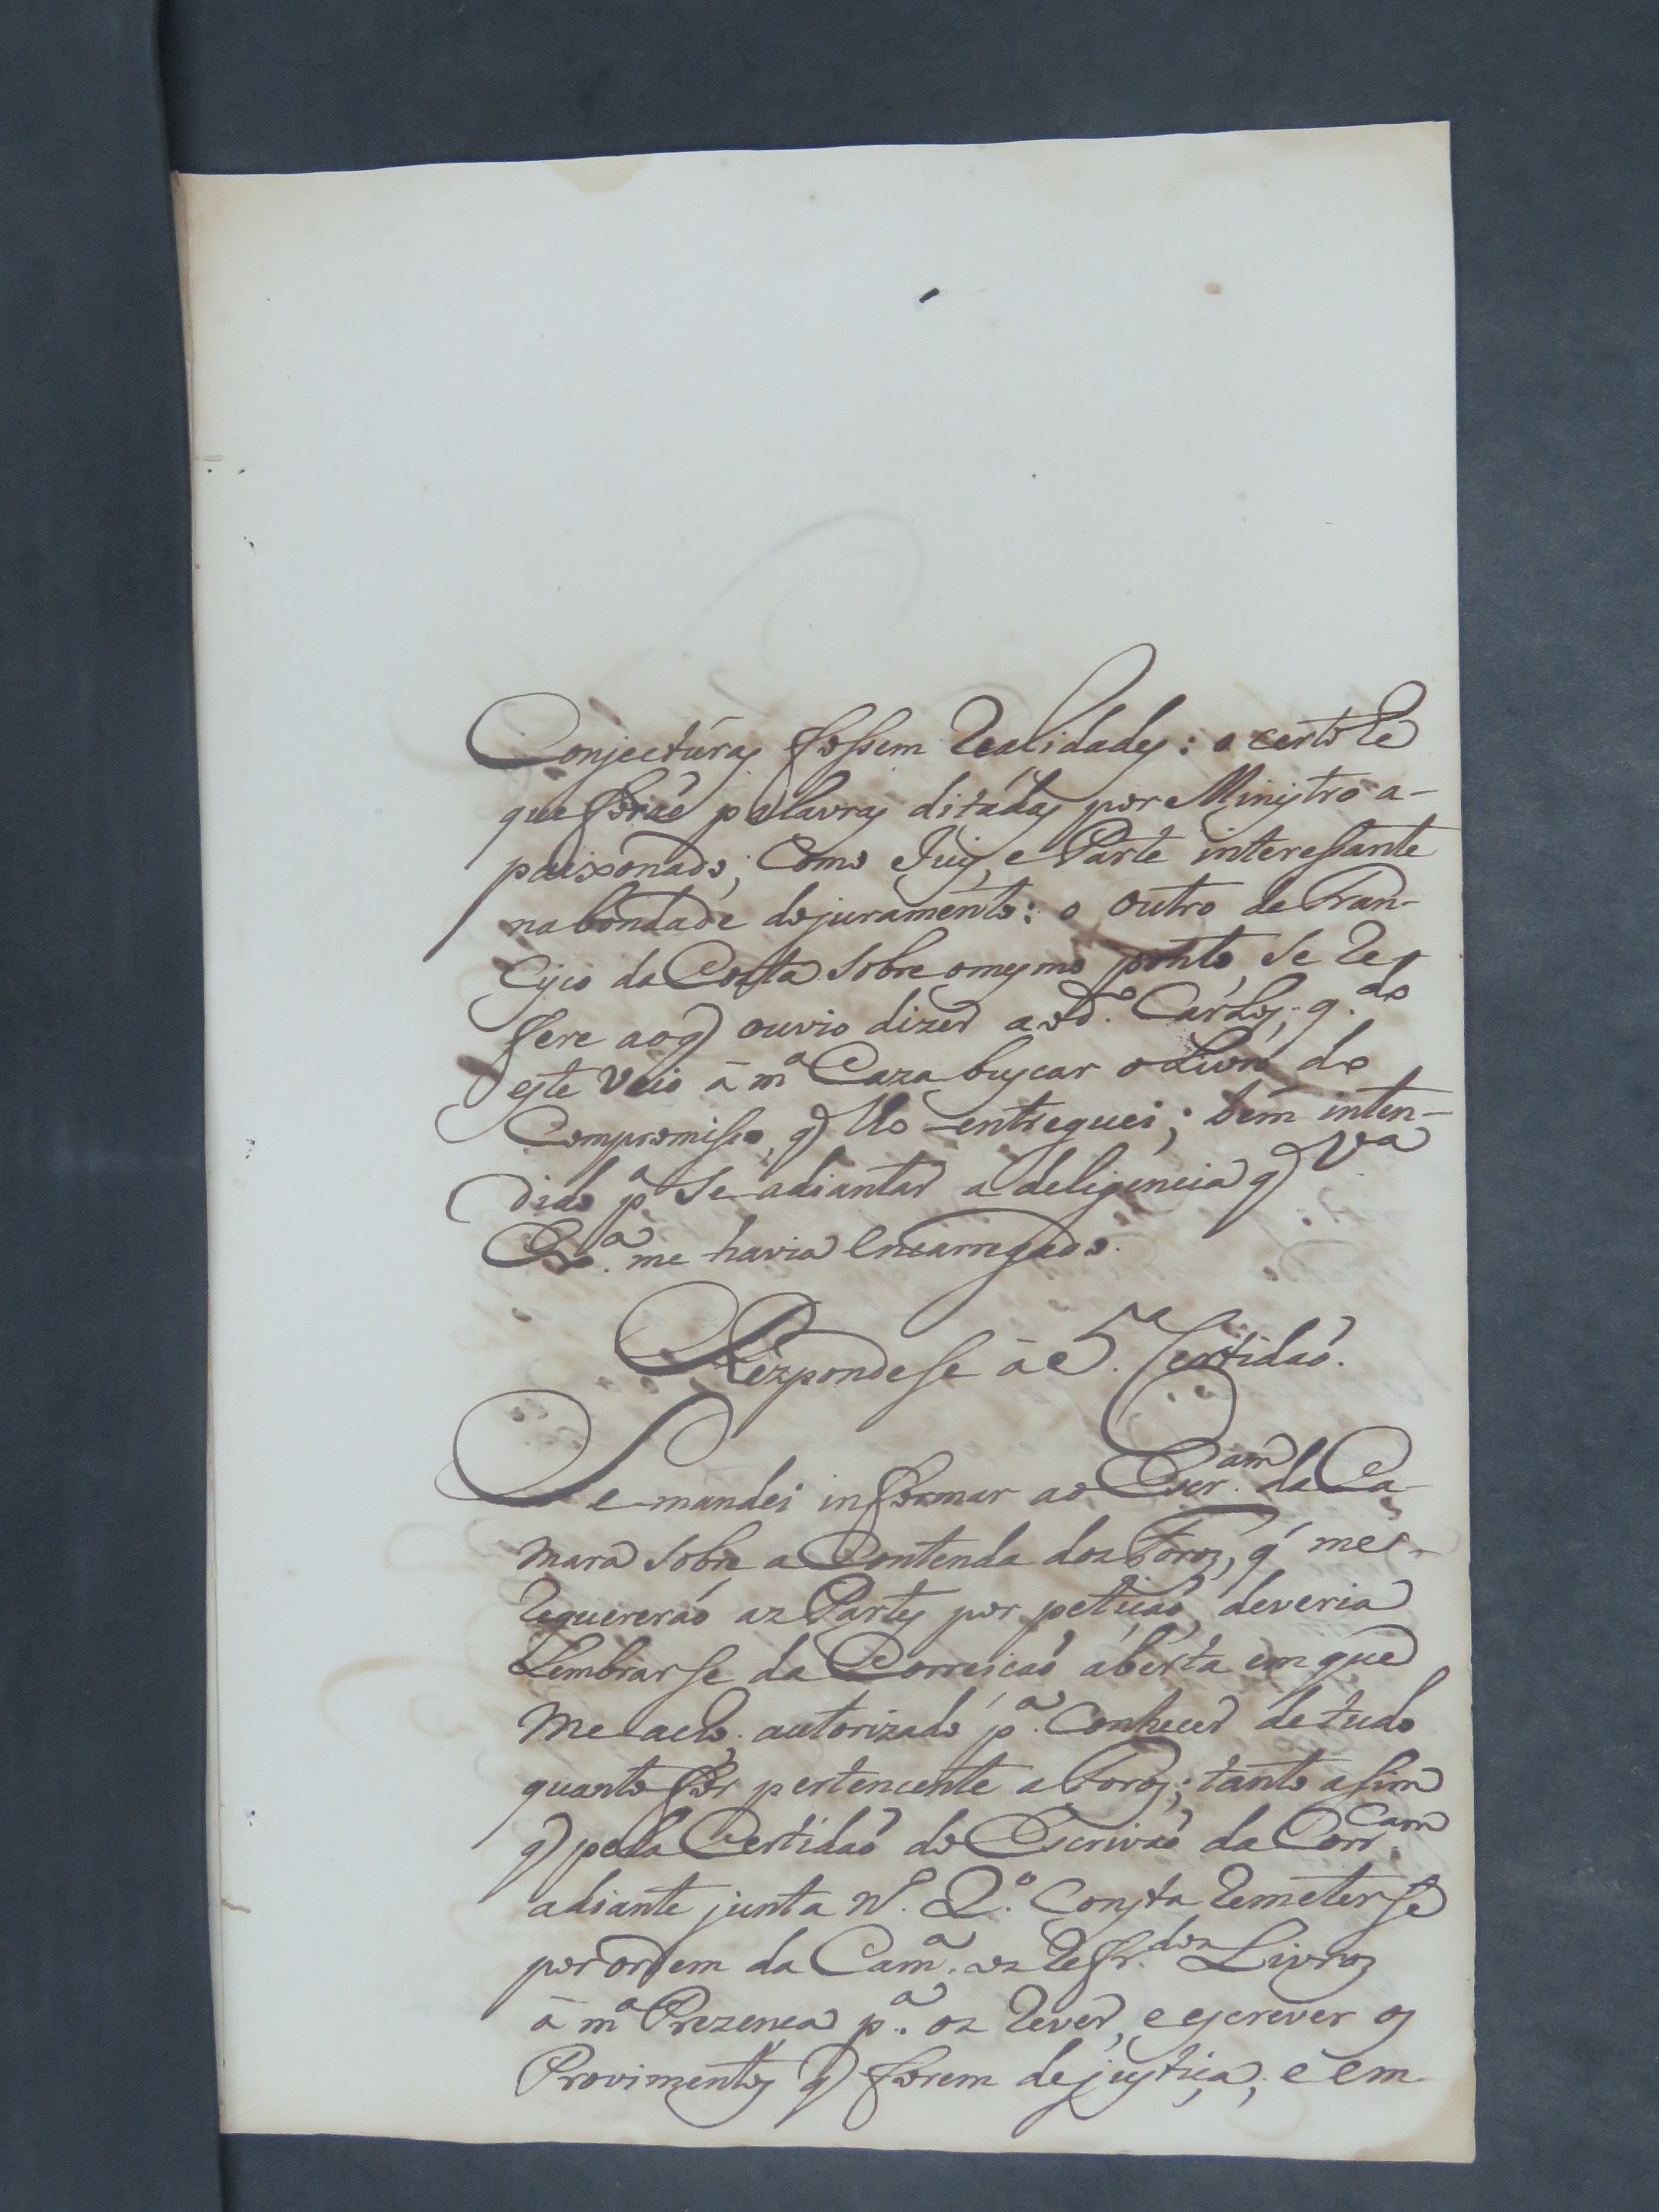 Conjecturas fossem Realidades: o certo he
que forão palavras ditadas por Ministro a-
paixonado, Como Juiz, e Parte interessante
na bondade do juramento: o outro de Fran-
cisco da Costa sobre o mesmo ponto, se Re-
fere ao q̃ ouvio dizer ao d.º Carlos, q.do
este veio á m.ª Caza buscar o Livro do
Compromisso, q̃ lho entreguei; bem inten-
dido p.ª se adiantar a deligencia q̃ V.a
Ex.ª me havia encarregado.
Respondese á 5.ª Certidaõ.
Se mandei informar ao Escr.am da Ca-
mara sobre a Contenda dos Foros, q́ me
Requererão as Partes por petiçaõ, deveria
Lembrarse da Correiçaõ aberta em que
me acho, autorizado p.ª Conhecer de tudo
quanto for pertencente a Foros; tanto asim
q̃ pela Certidaõ do Escrivaõ da Corr.cam
adiante junta N. 2.º Consta Remeterse
por ordem da Cam.ª os Refr.dos Livros
á m.ª Prezença p.ª os Rever, e escrever os
Provimentos q̃ forem de justiça; e em